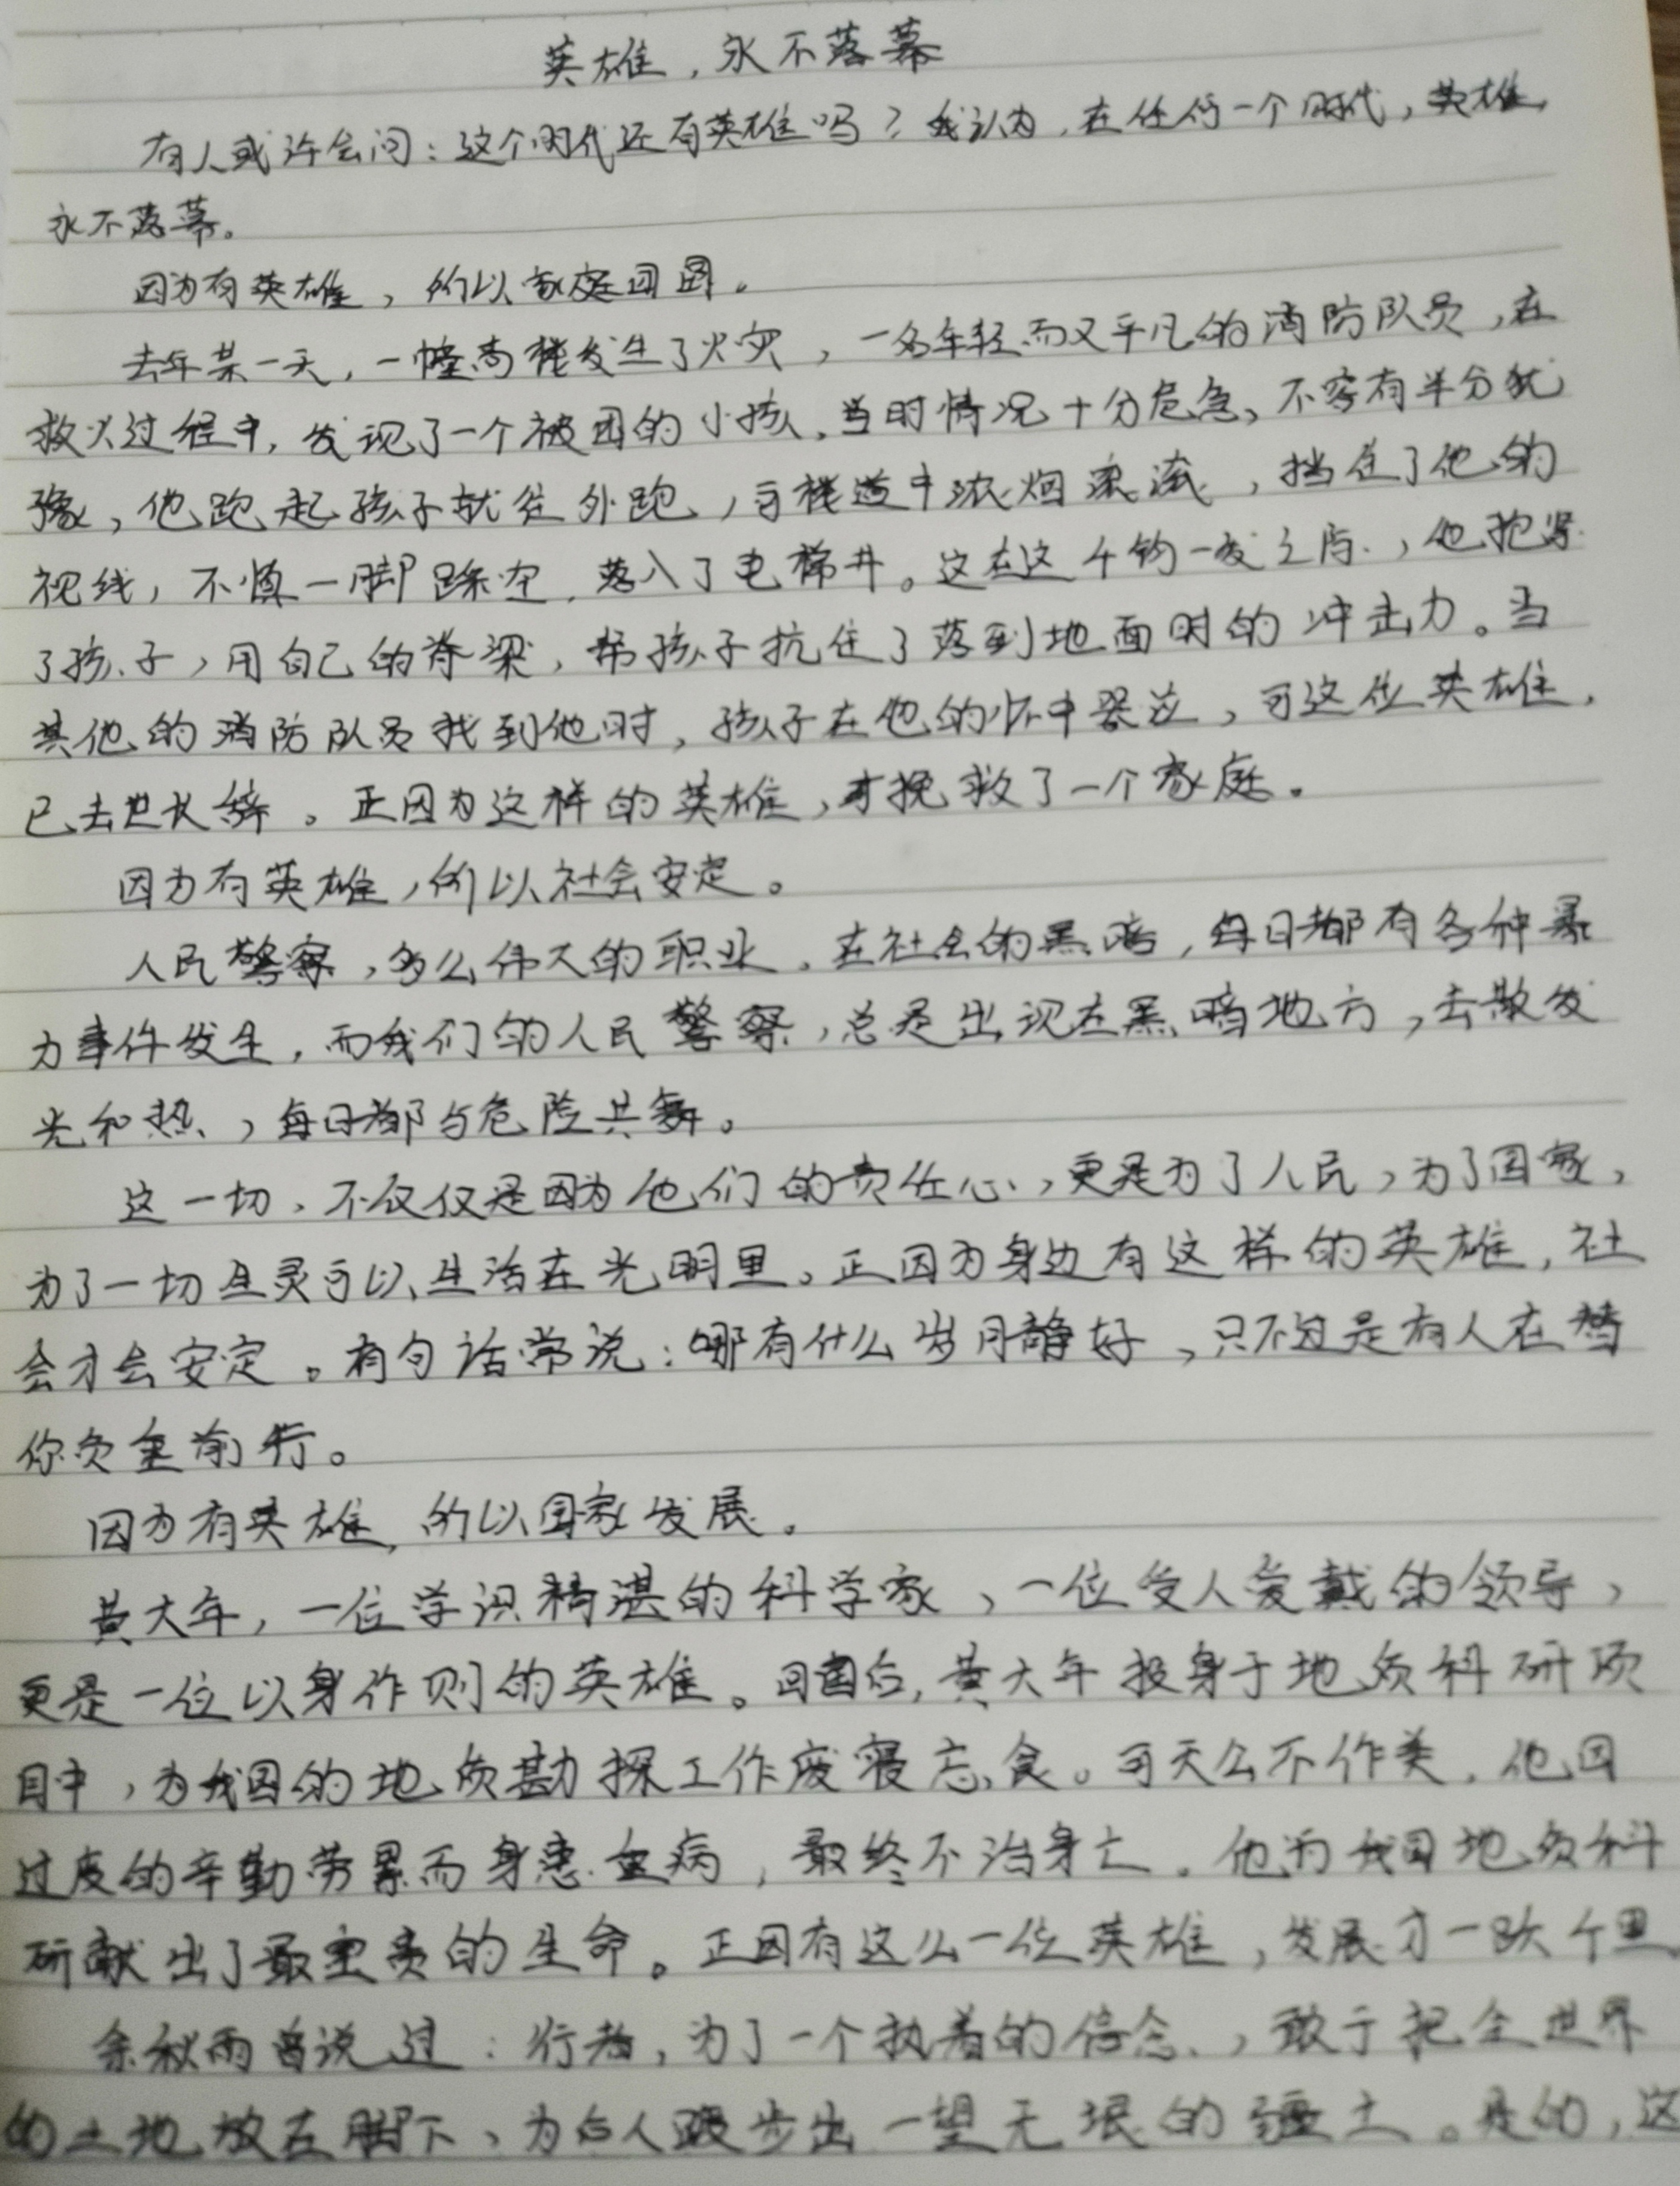 英雄，永不落幕
有人或许会问：这个时代还有英雄吗？我认为，在任何一个时代，英雄，
永不落幕。
因为有英雄，所以家庭团圆。
去年某一天，一幢高楼发生了火灾，一名年轻而又平凡的消防队员，在
救火过程中，发现了一个被困的小孩，当时情况十分危急，不容有半分犹
豫，他跑起孩子就往外跑，可楼道中浓烟滚滚，挡住了他的
视线，不慎一脚踩空，落入了电梯井。这在这千钧一发之际，他抱紧
了孩子，用自己的脊梁，帮孩子抗住了落到地面时的冲击力。当
其他的消防队员找到他时，孩子在他的怀中哭泣，可这位英雄，
已去世长辞。正因为这样的英雄，才挽救了一个家庭。
因为有英雄，所以社会安定。
人民警察，多么伟大的职业，在社会的黑暗，每日都有各种暴
力事件发生，而我们的人民警察，总是出现在黑暗地方，去散发
光和热，每日都与危险共舞。
这一切，不仅仅是因为他们的责任心，更是为了人民，为了国家，
为了一切生灵可以生活在光明里。正因为身边有这样的英雄，社
会才会安定。有句话常说：哪有什么岁月静好，只不过是有人在替
你负重前行。
因为有英雄，所以国家发展。
黄大年，一位学识精湛的科学家，一位受人爱戴的领导，
更是一位以身作则的英雄。回国后，黄大年投身于地质科研项
目中，为我国的地质勘探工作废寝忘食。可天公不作美，他因
过度的辛勤劳累而身患重病，最终不治身亡。他为我国地质科
研献出了最宝贵的生命。正因有这么一位英雄，发展才一跃千里
余秋雨曾说过：行者，为了一个执着的信念，敢于把全世界
的土地放在脚下，为后人踱步出一望无垠的疆土。是的，这